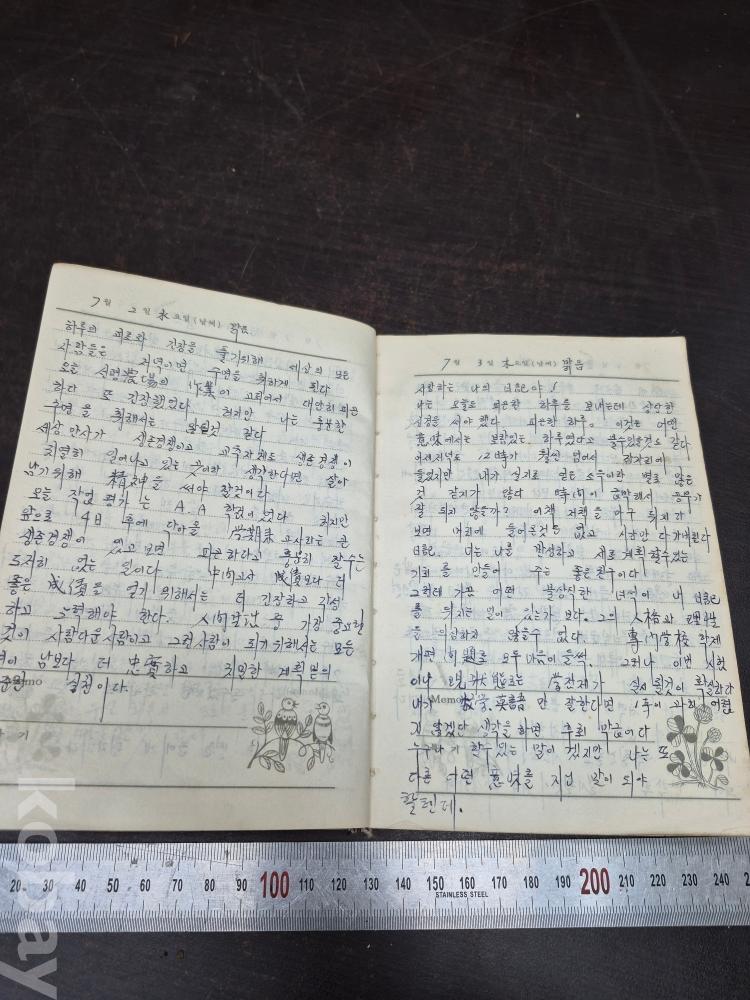 7월 2일 水요일(날씨) 맑음
하루의 피로와 긴장을 풀기위해 세상의 모든
사람들은 저녁이면 수면을 취하게 된다
오늘 서명 의 作業이 고되어서 대단히 피곤
하다 또 긴장했었다 허지만 나는 충분한
수면을 취해서는 않될것 같다
세상만사가 생존경쟁이고 생존경쟁이
치열히 일어나고 있는 곳이라 생각한다면 살아
남기위해 精神을 써야 할것이다
오늘 작업 평가는 A.A 학점이었다 허지만
앞으로 4日 후에 닥아올 學期末 고사라는 큰
생존경쟁이 있고 보면 피곤하다고 충분히 잘수는
도저히 없는 일이다 中間고사 成績보다 더
좋은 成績을 얻기 위해서는 더 긴장하고 각성
하고 노력해야 한다. 人間 중 가장 중요한
것이 사람다운사람이고 그런사람이 되기위해서는 모든
남보다 더 忠實하고 치밀한 계획밑의
실천이다
Memo
7월 3일 木요일(날씨) 맑음
사랑하는 나의 日記야!
나는 오늘도 피곤한 하루를 보내는데 상당한
신경을 써야 했다 피곤한 하루. 이것은 어떤
意味에서는 보람있는 하루였다고 볼수있을것도 같다
어젠저녁도 12時가 훨씬 넘어서 잠자리에
들었지만 내가 실지로 얻은 소득이란 별로 많은
것 같지가 않다 時間이 급박해서 공부가
잘 되지 않을까? 이책 저책을 마구 뒤지다
보면 머리에 들어온것은 없고 시간만 다가버린다
日記. 너는 나를 반성하고 새로 계획할수있는
기회를 만들어 주는 좋은친구이다
그런데 가끔 어떤 몰상식한 녀석이 내 日記
를 뒤지는 일이 있는가 보다. 그의 人格과 理性
을 의심하지 않을수 없다. 專門學校 학제
개편 問題로 모두 마음이 들썩. 그러나 이번 시험
이나 現 狀態로는 실시 될것이 확실하다
Memo
내가 만 잘한다면 1후이 어렵
지 않겠다 생각을 하면 추리 반급이다
누구나가 할수있는 말이 겠지만 나는 또
다른 어떤 意味를 지닌 말이 되야
할텐데.
20 30 40 50 60 70 80 90 100 110 120 130 140 150 160 170 180 190 200 210 220 230 240
STAINLESS STEEL
kobay